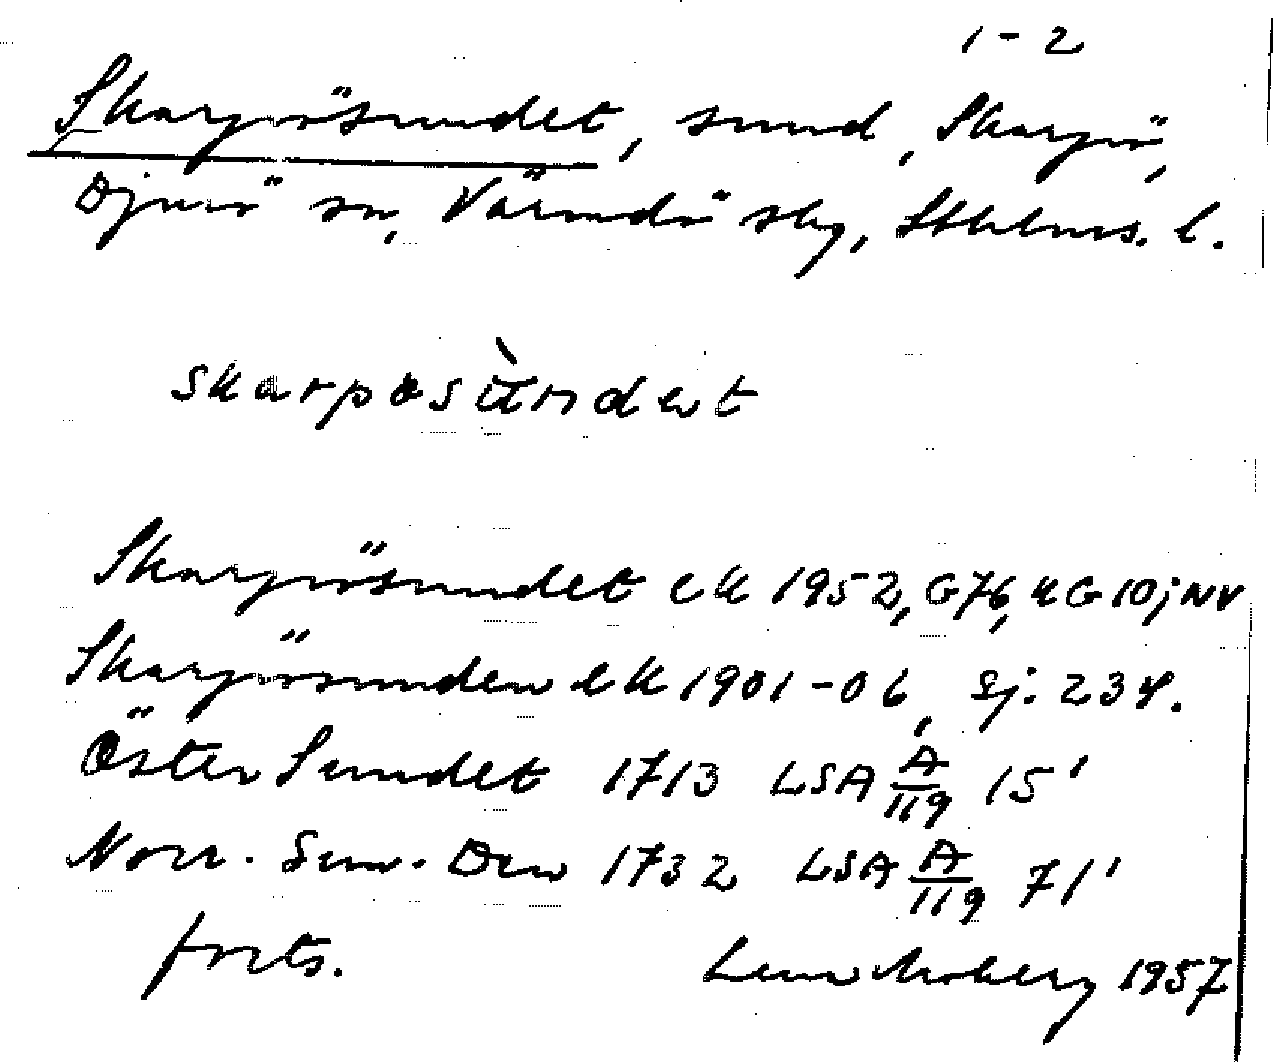 1-2
Skarpösundet, sund, Skarpö,
Djurö sn, Värmdö skg, Sthlms. l.
skarpøsùndet
Skarpösundet ek 1952, G76, KG 10j NV
Skarpösunden ek 1901-06, Sj. 234.
Öster Sundet 1713 LSA A/119 15'
Norr. Sun. Den 1732 LSA A/119 71'
forts. Moberg 1957